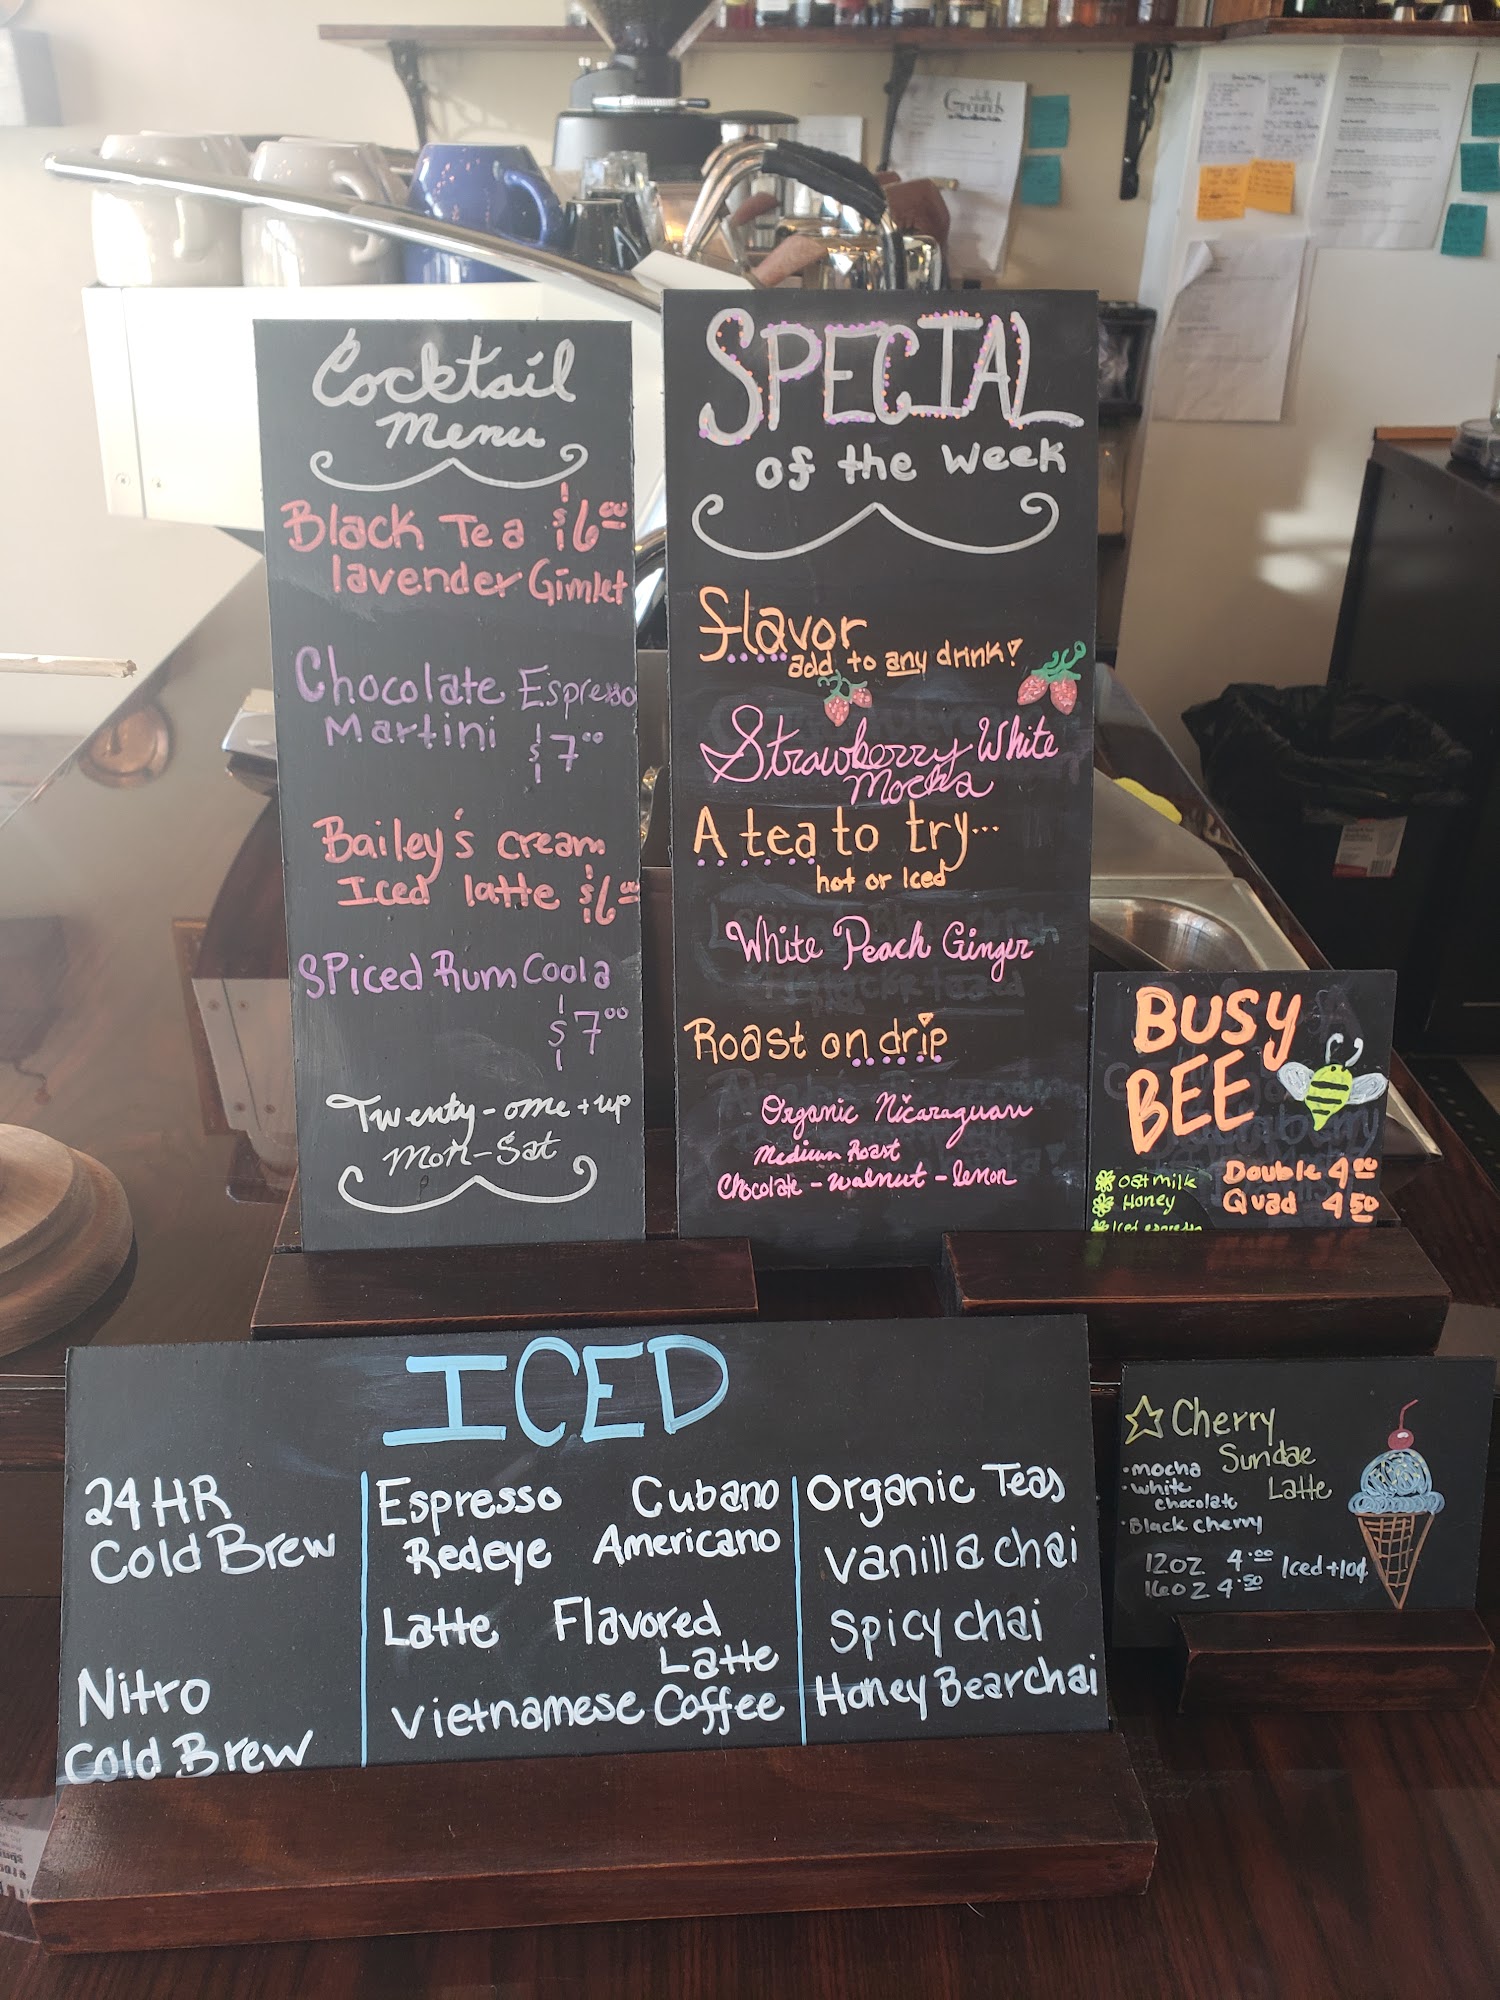 Cocktail
Menu
Black Tea $6.00
lavender Gimlet
Chocolate Espresso
Martini $7.00
Bailey's cream
Iced latte $6.00
Spiced Rum Coola
$7.00
Twenty-one + up
Mon-Sat
SPECIAL
of the Week
flavor
add to any drink!
Strawberry White
Mocha
A tea to try...
hot or Iced
White Peach Ginger
Roast on drip
Organic Nicaraguan
Medium Roast
Chocolate - walnut - lemon
BUSY
BEE
Oatmilk
Honey
Iced
Double 4.00
Quad 4.50
ICED
24 HR
Cold Brew
Nitro
Cold Brew
Espresso Cubano
Redeye Americano
Latte Flavored
Latte
Vietnamese Coffee
Organic Teas
Vanilla chai
Spicy chai
Honey Bear chai
Cherry
Sundae
Latte
•mocha
•white
chocolate
•Black cherry
12oz 4.00
16oz 4.50
Iced +10¢
Grounds